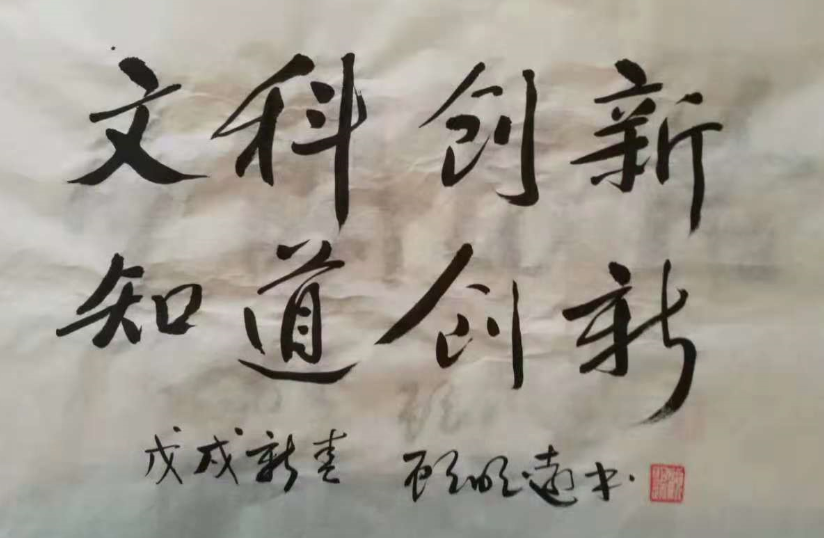 文科创新
知道创新
戊戌新春 顾明远书